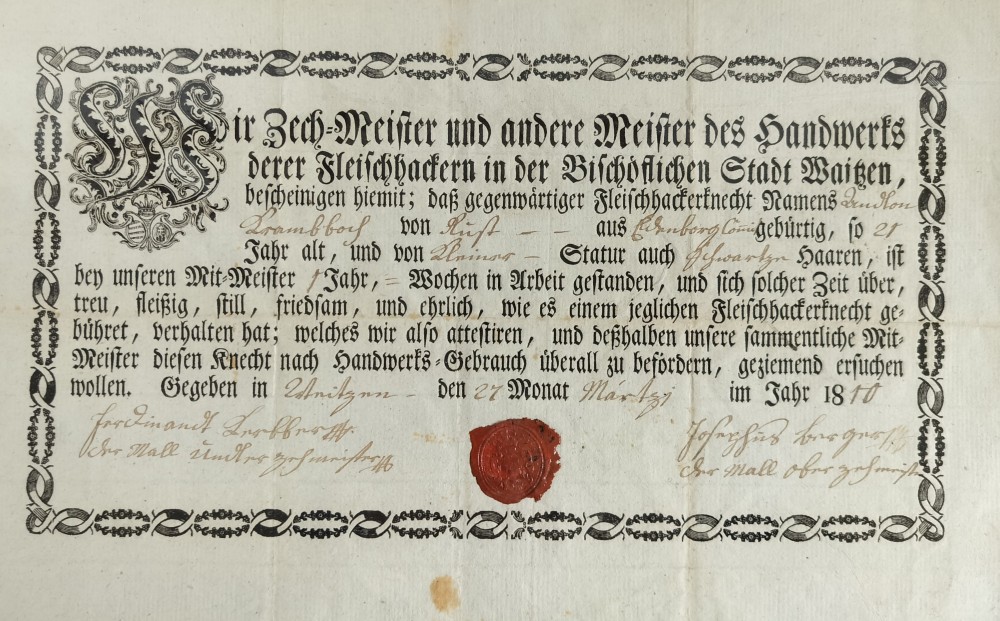 Wir Zech-Meister und andere Meister des Handwerks
derer Fleischhackern in der Bischöflichen Stadt Waitzen,
bescheinigen hiemit; daß gegenwärtiger Fleischhackerknecht Namens
Krambboch von Rust - - aus Edenborg gebürtig, so 21
Jahr alt, und von Kleiner - Statur auch schwartze Haaren, ist
bey unseren Mit-Meister 1 Jahr, = Wochen in Arbeit gestanden, und sich solcher Zeit über,
treu, fleißig, still, friedsam, und ehrlich, wie es einem jeglichen Fleischhackerknecht ge-
bühret, verhalten hat; welches wir also attestiren, und deßhalben unsere sammentliche Mit-
Meister diesen Knecht nach Handwerks-Gebrauch überall zu befördern, geziemend ersuchen
wollen. Gegeben in Weitzen - den 27 Monat Märtzi im Jahr 1810
Ferdinandt
der Mall Undter zehmeister
Josephus berger
der Mall ober zehmeist